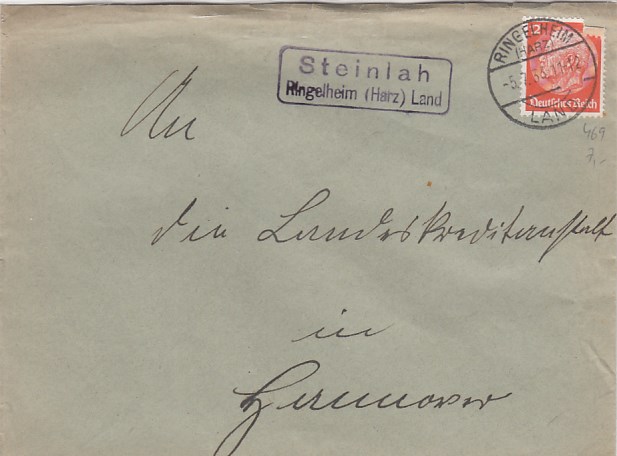 Steinlah
Ringelheim (Harz) Land
RINGELHEIM
(HARZ)
LAND
12
Deutsches Reich
469
7,-
An
die Landeskreditanstalt
in
Hannover